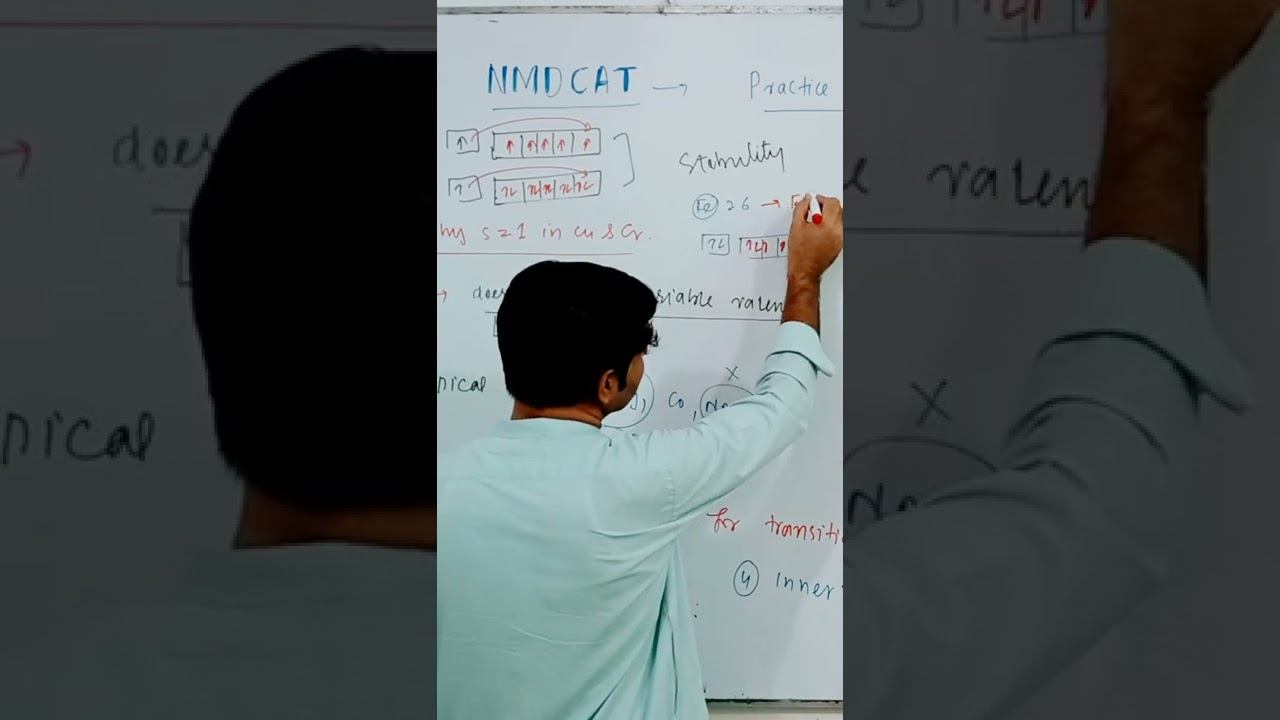 NMDCAT → Practice
Stability
Fe 26 →
s=1 in cu & Cr.
→ does riable valen
pical Co,
X
for transiti
④ Inner